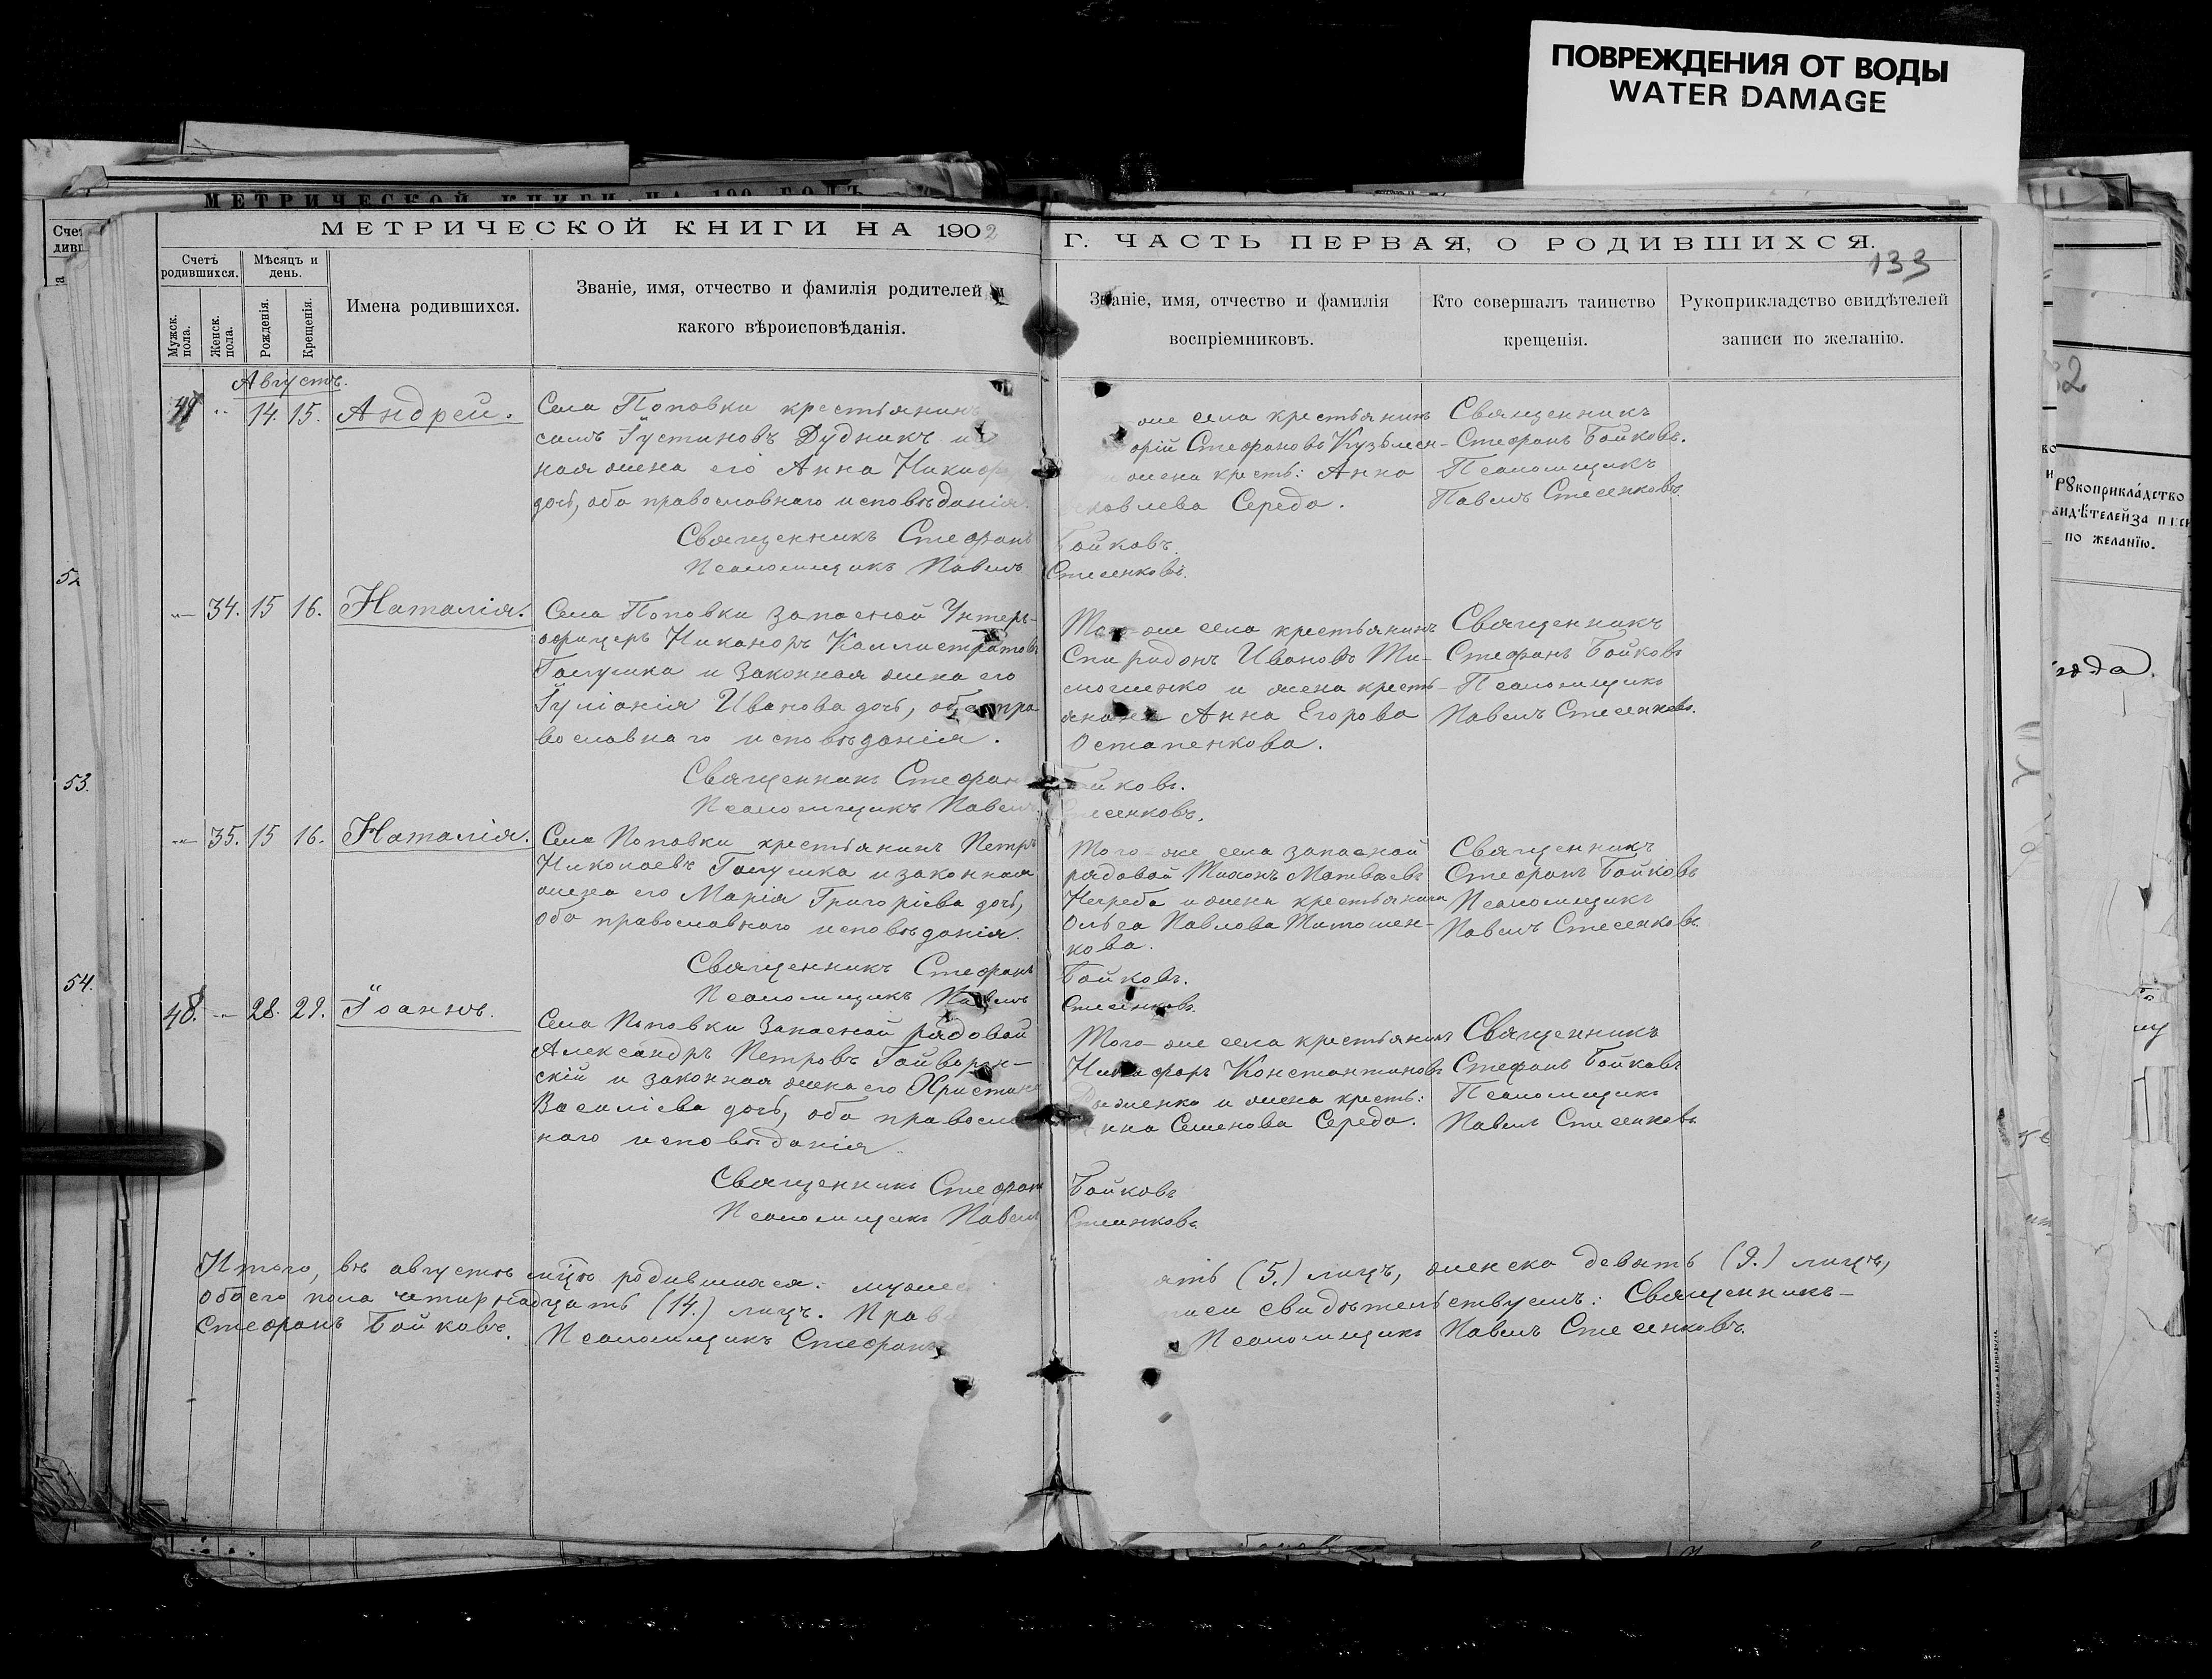 ПОВРЕЖДЕНИЯ ОТ ВОДЫ
WATER DAMAGE
МЕТРИЧЕСКОЙ КНИГИ НА 1902
Г. ЧАСТЬ ПЕРВАЯ, О РОДИВШИХСЯ.
133
Счетъ родившихся.
Мѣсяцъ и день.
Мужск. пола.
Женск. пола.
Рожденія.
Крещенія.
Имена родившихся.
Званіе, имя, отчество и фамилія родителей и
какого вѣроисповѣданія.
Званіе, имя, отчество и фамилія
воспріемниковъ.
Кто совершалъ таинство
крещенія.
Рукоприкладство свидѣтелей
записи по желанію.
Августъ.
14. 15. Андрей.
Села Поповки крестьянинъ
Іустиновъ Дудникъ
ная жена его Анна
дочь, оба православнаго исповѣданія.
Священникъ Стефанъ
Псаломщикъ Павелъ
же села крестьянинъ
Стефановъ Кузьмен-
жена крестъ: Анна
Середа.
Бойковъ.
Стесенковъ.
Священникъ
Стефанъ Бойковъ.
Псаломщикъ
Павелъ Стесенковъ.
34. 15 16. Наталія.
Села Поповки запасной Унтеръ-
офицеръ Никаноръ Каллистратовъ
Галушка и законная жена его
Іуліанія Иванова дочь, оба пра
вославнаго исповѣданія.
Священникъ Стефанъ
Псаломщикъ Павелъ
Того же села крестьянинъ
Спиридонъ Ивановъ Ти-
мошенко и жена кресть-
янина Анна Егорова
Остапенкова.
Бойковъ.
Стесенковъ.
Священникъ
Стефанъ Бойковъ
Псаломщикъ
Павелъ Стесенковъ.
35. 15 16. Наталія.
Села Поповки крестьянинъ Петръ
Николаевъ Галушка и законная
жена его Марія Григоріева дочь,
оба православнаго исповѣданія.
Священникъ Стефанъ
Псаломщикъ Павелъ
Того-же села запасной
рядовой Тихонъ Матвѣевъ
Негреба и жена крестьянина
Ольга Павлова Тимошен-
кова.
Бойковъ.
Стесенковъ.
Священникъ
Стефанъ Бойковъ
Псаломщикъ
Павелъ Стесенковъ.
48. 28. 29. Іоаннъ.
Села Поповки Запасной рядовой
Александръ Петровъ Гайворон-
скій и законная жена его Христина
Василіева дочь, оба правосла
наго исповѣданія.
Священникъ Стефанъ
Псаломщикъ Павелъ
Того-же села крестьянинъ
Никифоръ Константиновъ
и жена крестъ:
Семенова Середа.
Бойковъ
Стесенковъ.
Священникъ
Стефанъ Бойковъ
Псаломщикъ
Павелъ Стесенковъ.
Итого, въ августѣ мцѣ родившихся:
(5.) лицъ, женска девять (9.) лицъ,
обоего пола четырнадцать (14.) лицъ.
свидѣтельствуемъ: Священникъ-
Стефанъ Бойковъ. Псаломщикъ Стефанъ
Псаломщикъ Павелъ Стесенковъ.
52
53.
54.
Рукоприкладство
по желанію.